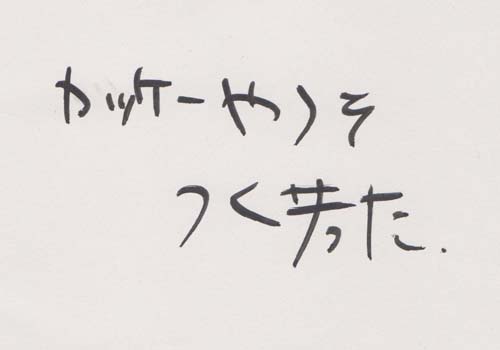 カッケーやつそ
つく った.